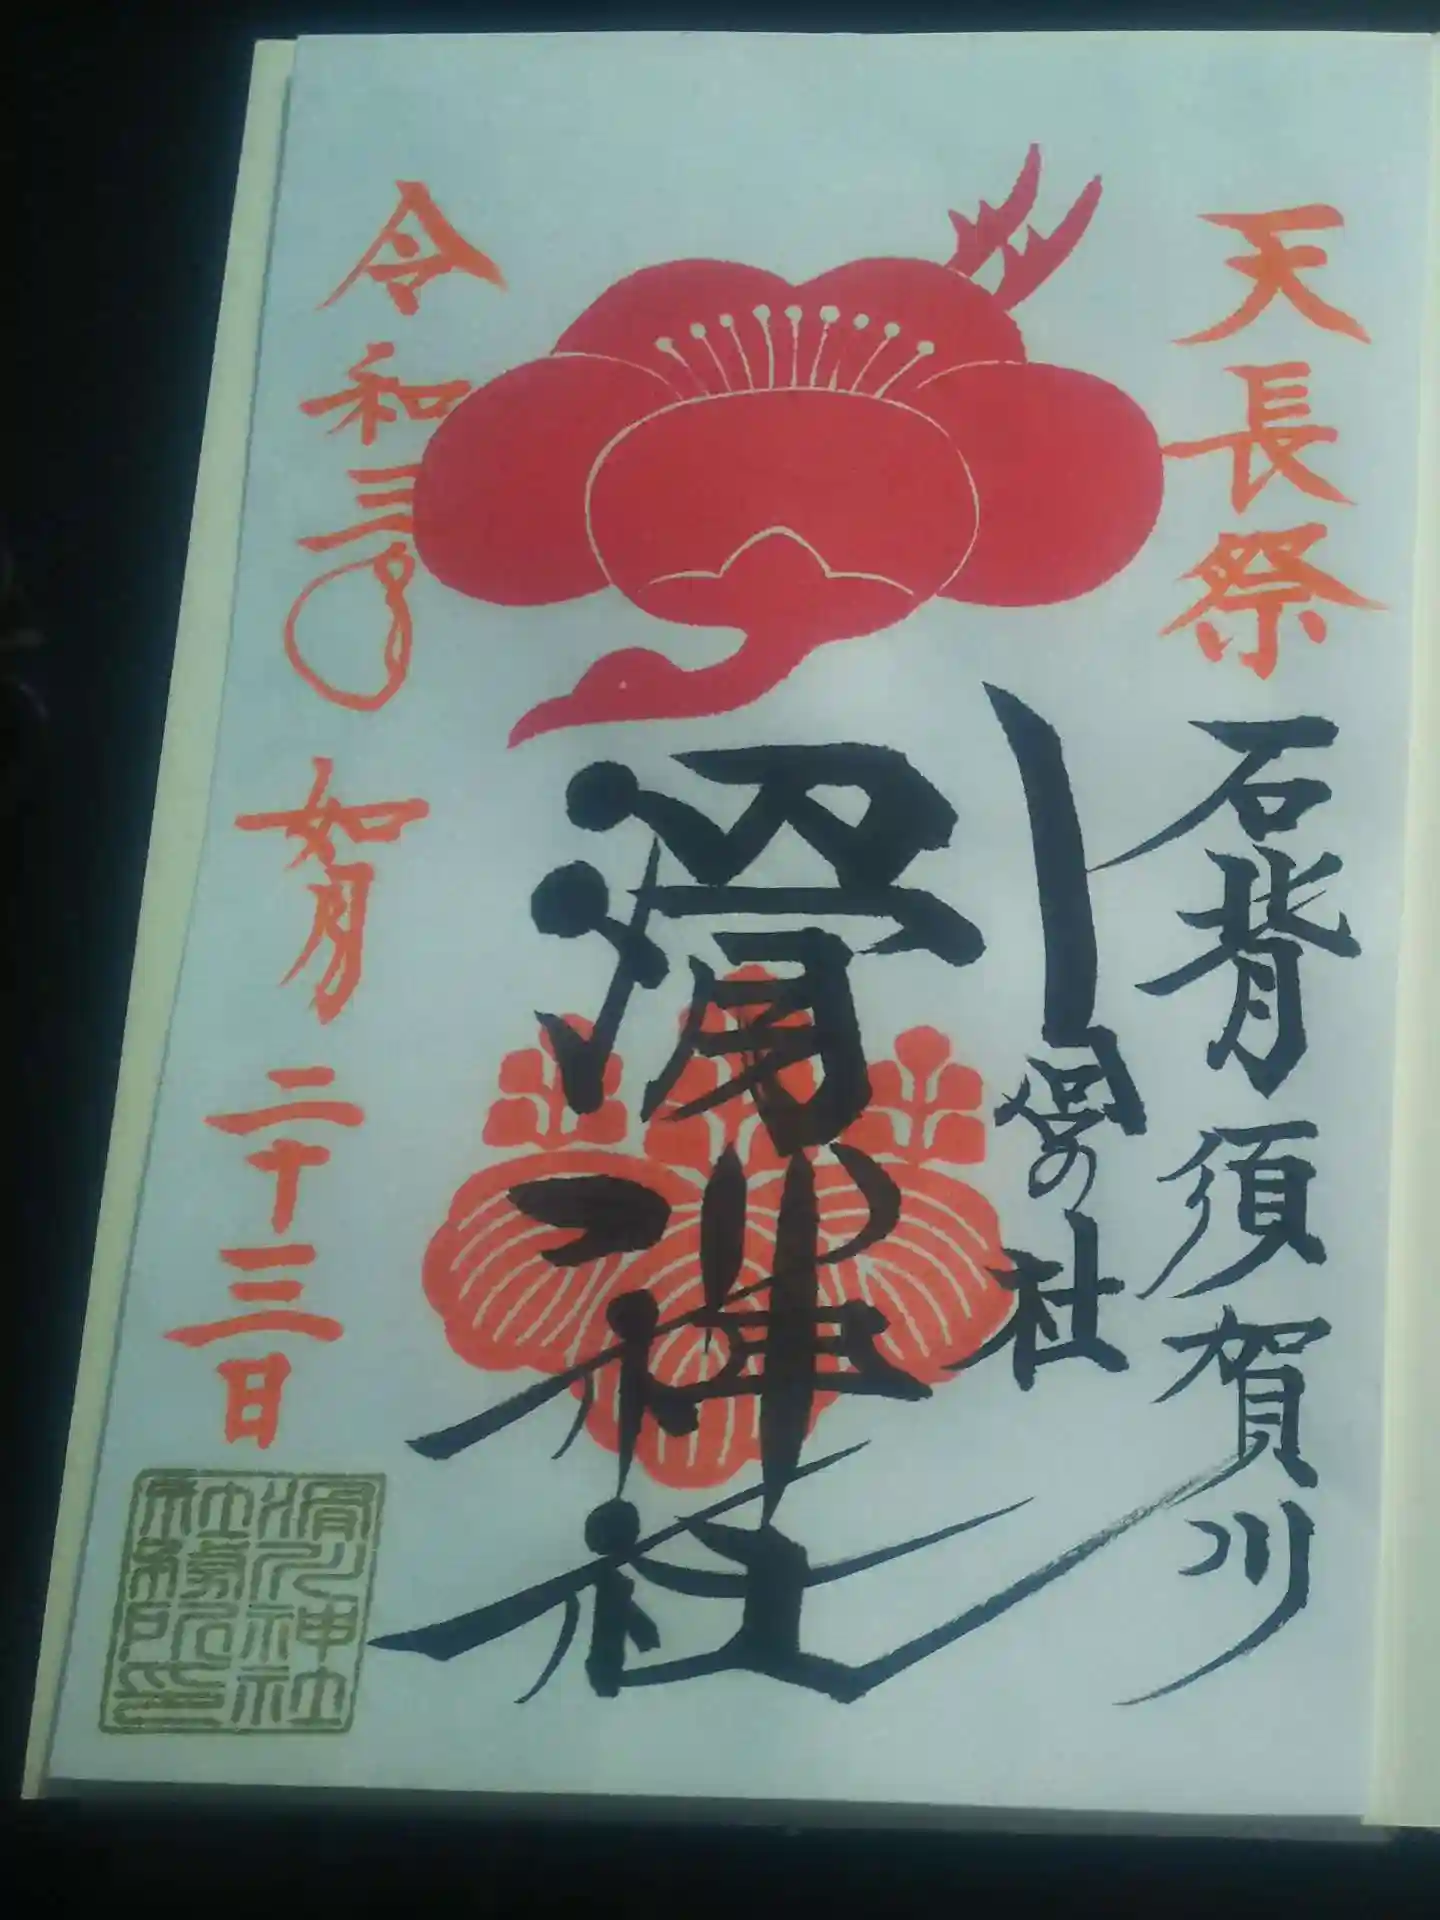 天長祭
石背須賀川
の社
滑川神社
令和三年 如月 二十三日
滑川神社
社務所印